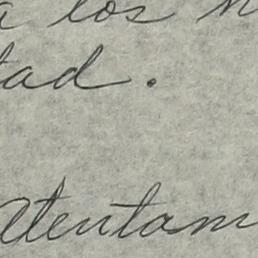 a los n
tad.
Atentam